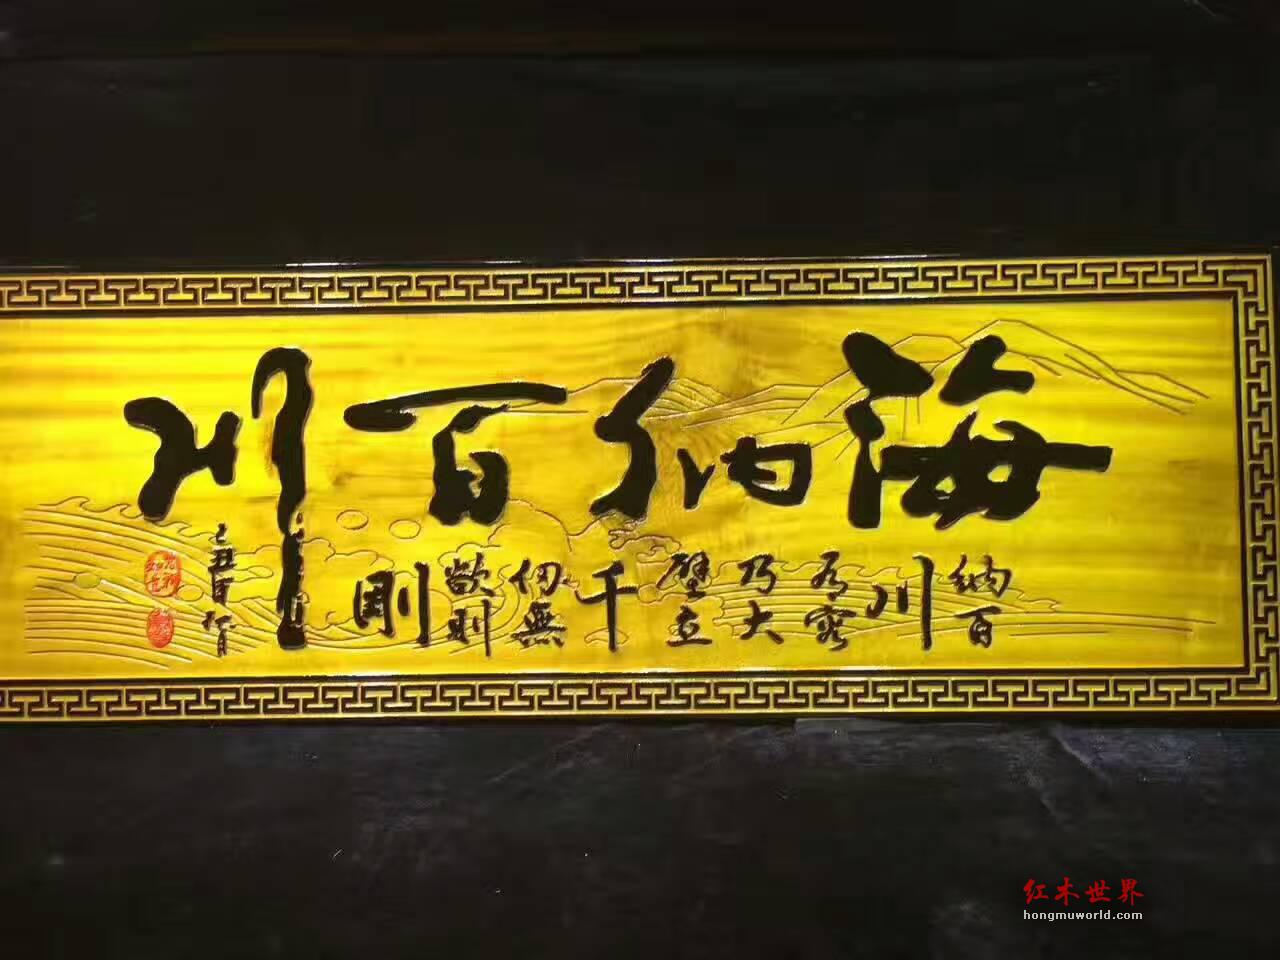 海纳百川
纳百
川
有容
乃大
壁立
千
仞無
欲則
剛
己丑
红木世界
hongmuworld.com